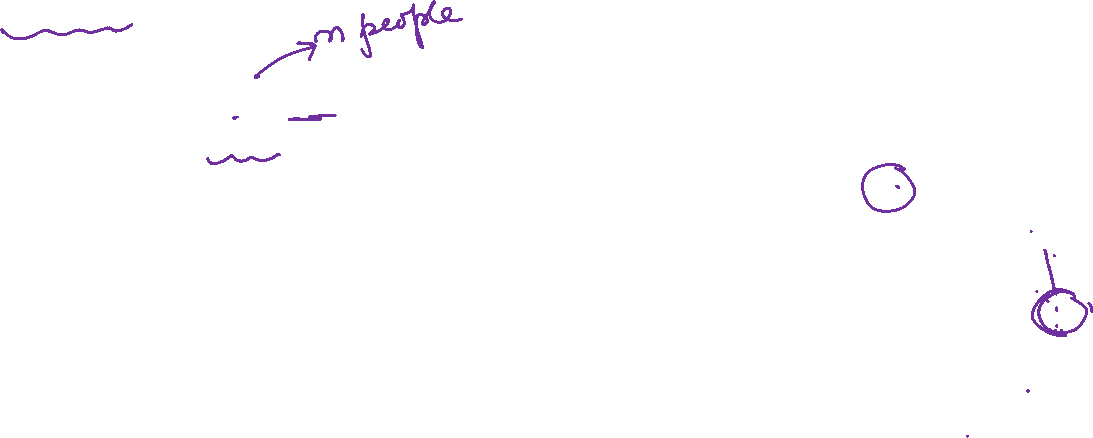 m people